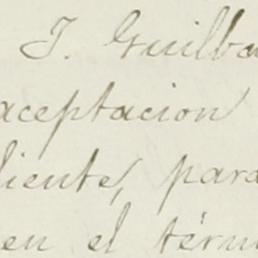 J. Guilba
aceptacion
diente, para
en el térm